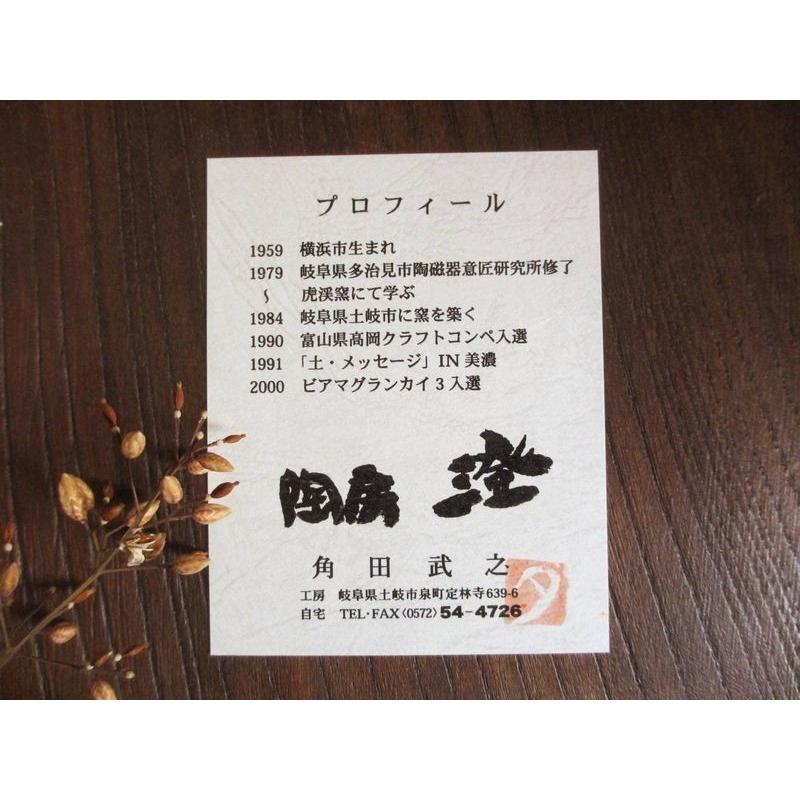 プロフィール
1959 横浜市生まれ
1979 岐阜県多治見市陶磁器意匠研究所修了
〜 虎渓窯にて学ぶ
1984 岐阜県土岐市に窯を築く
1990 富山県高岡クラフトコンペ入選
1991 「土・メッセージ」IN 美濃
2000 ビアマグランカイ3入選
陶房 澄
角田武之
工房 岐阜県土岐市泉町定林寺639-6
自宅 TEL・FAX〈0572〉54-4726